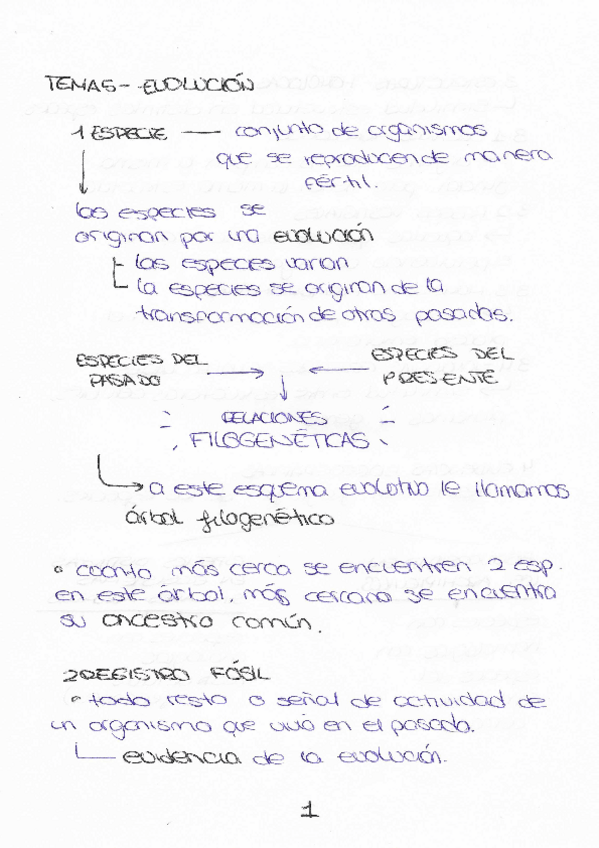 TEMA5 - EVOLUCIÓN
1 ESPECIE — conjunto de organismos
que se reproducen de manera
fértil.
las especies se
originan por una evolución
las especies varian
la especies se originan de la
transformación de otras pasadas.
ESPECIES DEL
PASADO
ESPECIES DEL
PRESENTE
RELACIONES
FILOGENÉTICAS
a este esquema evolutivo le llamamos
árbol filogenético
• cuanto más cerca se encuentren 2 esp.
en este árbol, más cercano se encuentra
su ancestro común.
2 REGISTRO FÓSIL
• todo resto o señal de actividad de
un organismo que vivió en el pasado.
evidencia de la evolución.
1